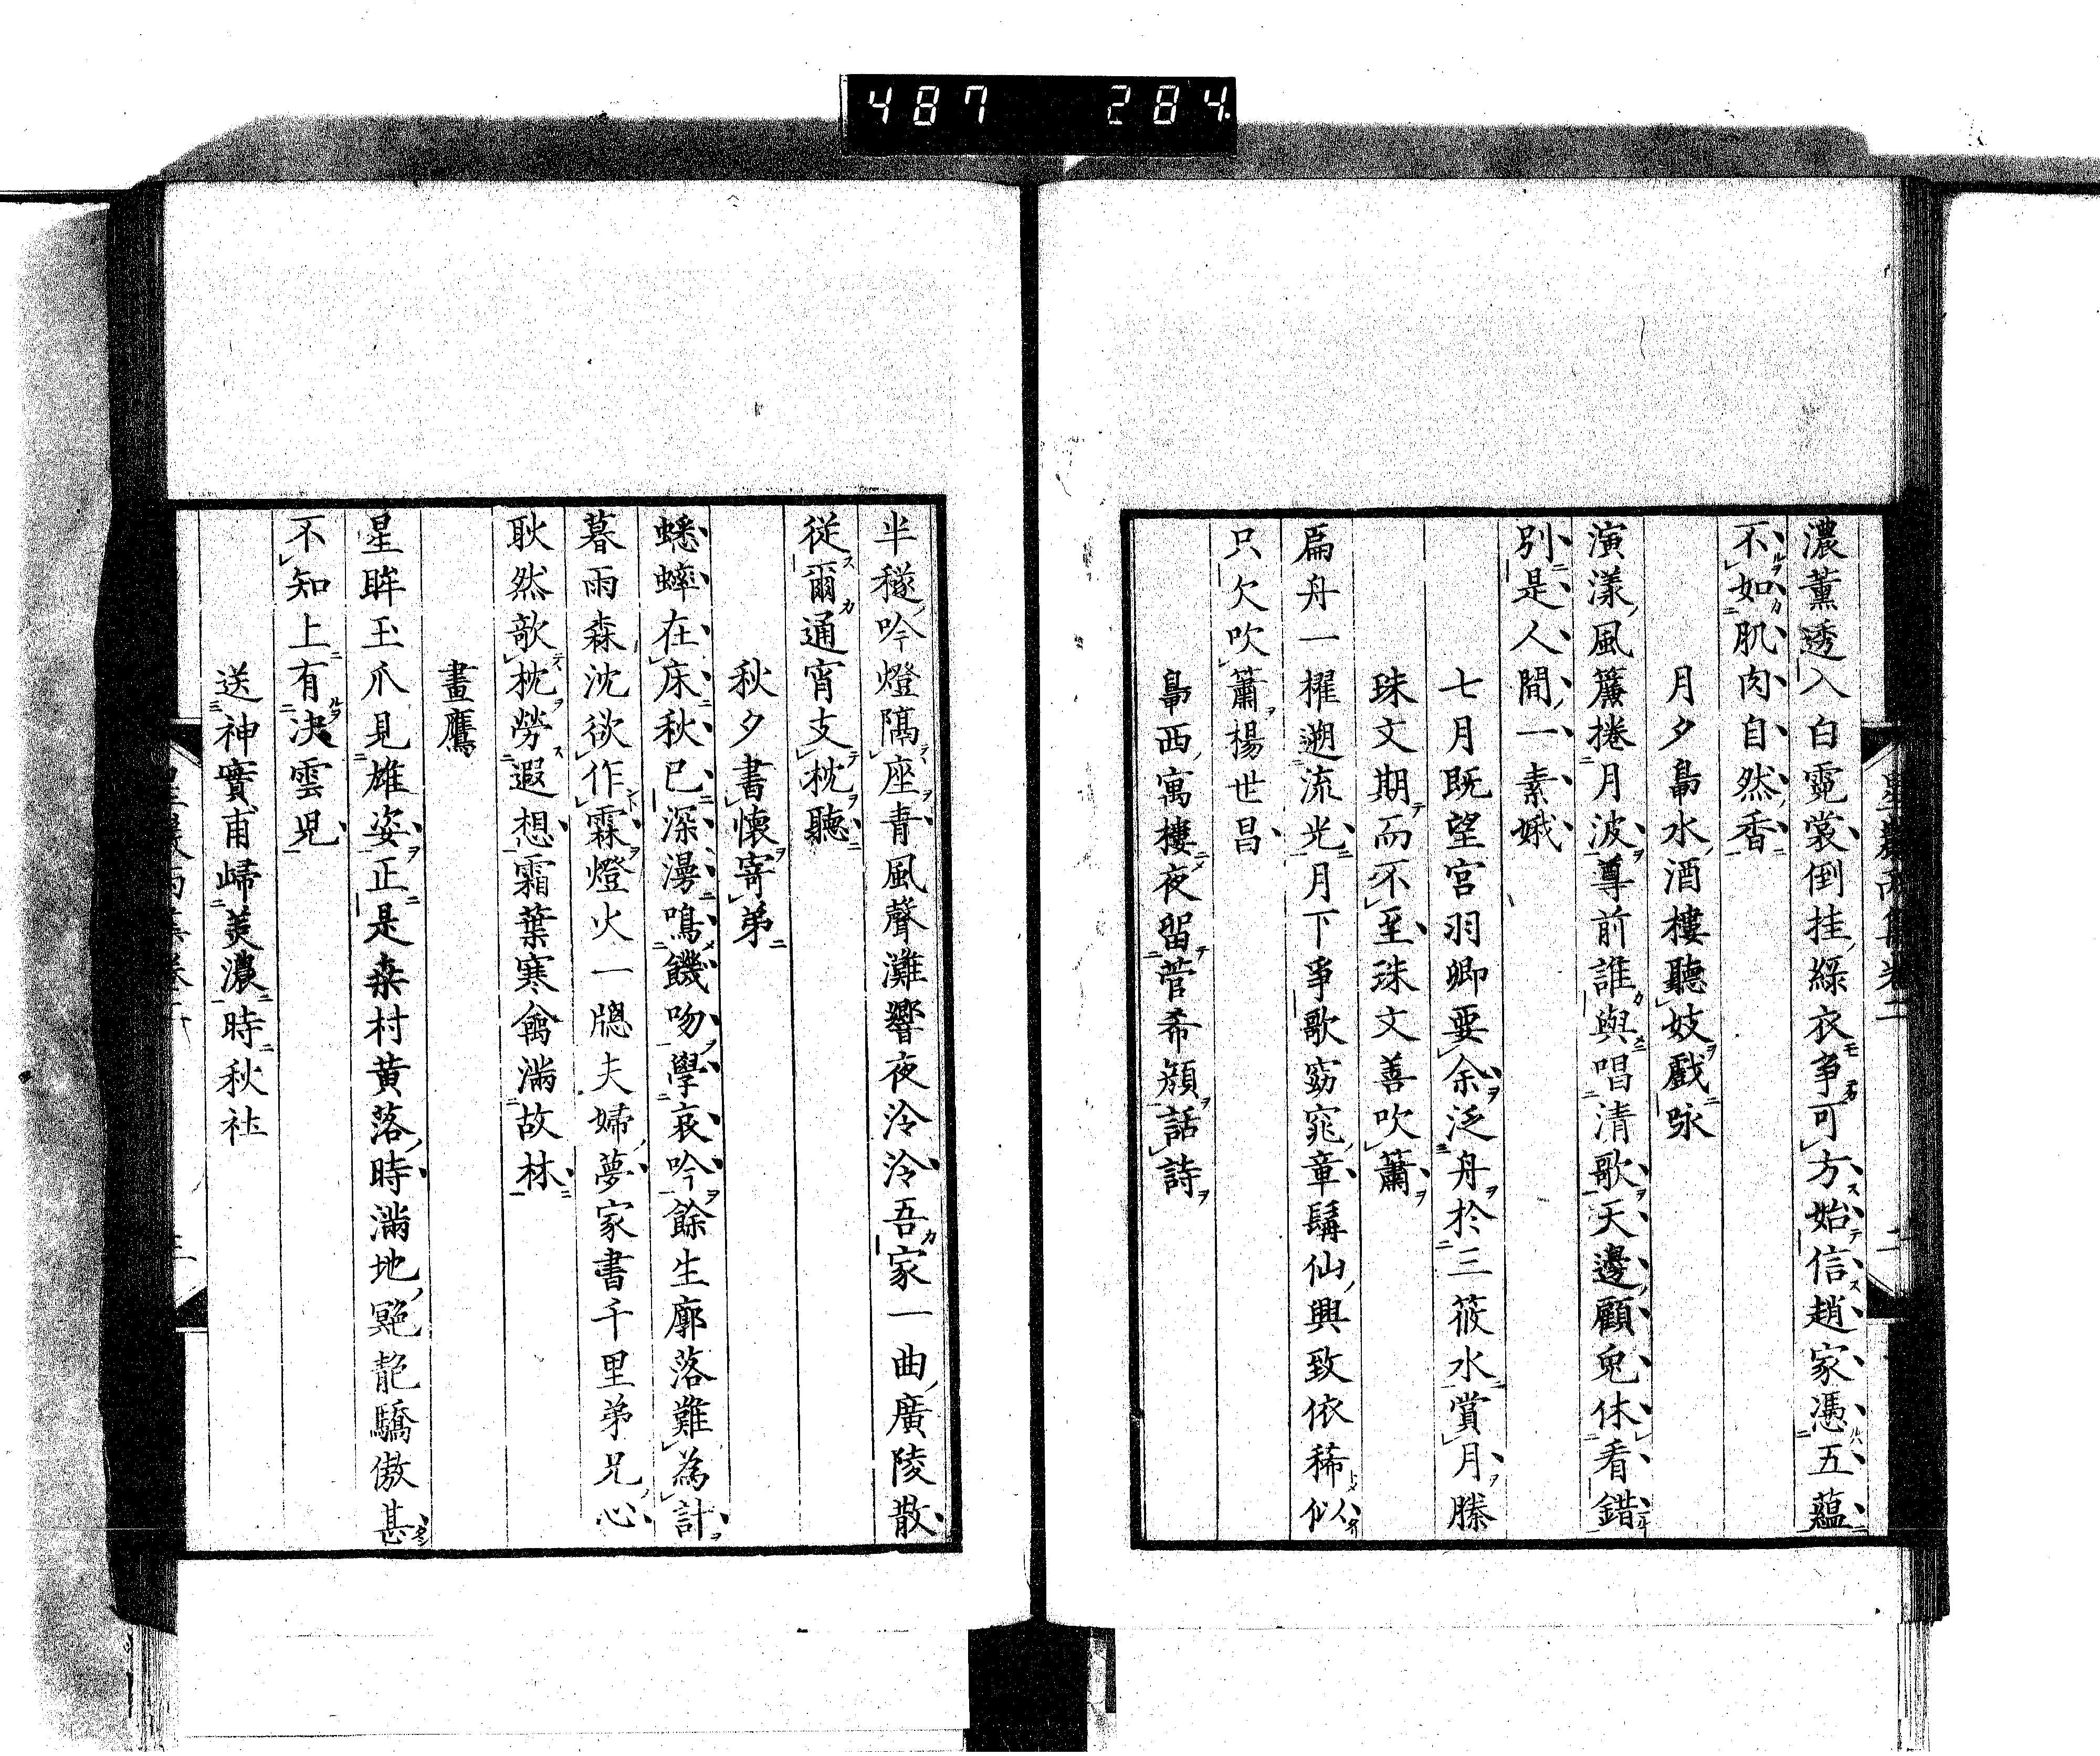 487 284
濃薰透入白霓裳倒挂綠衣爭可方始信趙家憑五蘊
不如肌肉自然香
月夕鳧水酒樓聽妓戲咏
演漾風簾捲月波尊前誰與唱清歌天邊顧兔休看錯
別是人間一素娥
七月既望宮羽卿要余泛舟於三篠水賞月滕
珠文期而不至珠文善吹簫
扁舟一櫂遡流光月下爭歌窈窕章髯仙興致依稀似
只欠吹簫楊世昌
鳧西寓樓夜留菅希顔話詩
半穟吟燈隔座青風聲灘響夜泠泠吾家一曲廣陵散
從爾通宵支枕聽
秋夕書懷寄弟
蟋蟀在床秋已深漫鳴饑吻學哀吟餘生廓落難為計
暮雨森沈欲作霖燈火一牕夫婦夢家書千里弟兄心
耿然欹枕勞遐想霜葉寒禽滿故林
畫鷹
星眸玉爪見雄姿正是桑村黄落時滿地兔乾驕傲甚
不知上有決雲兒
送神實甫歸美濃時秋社